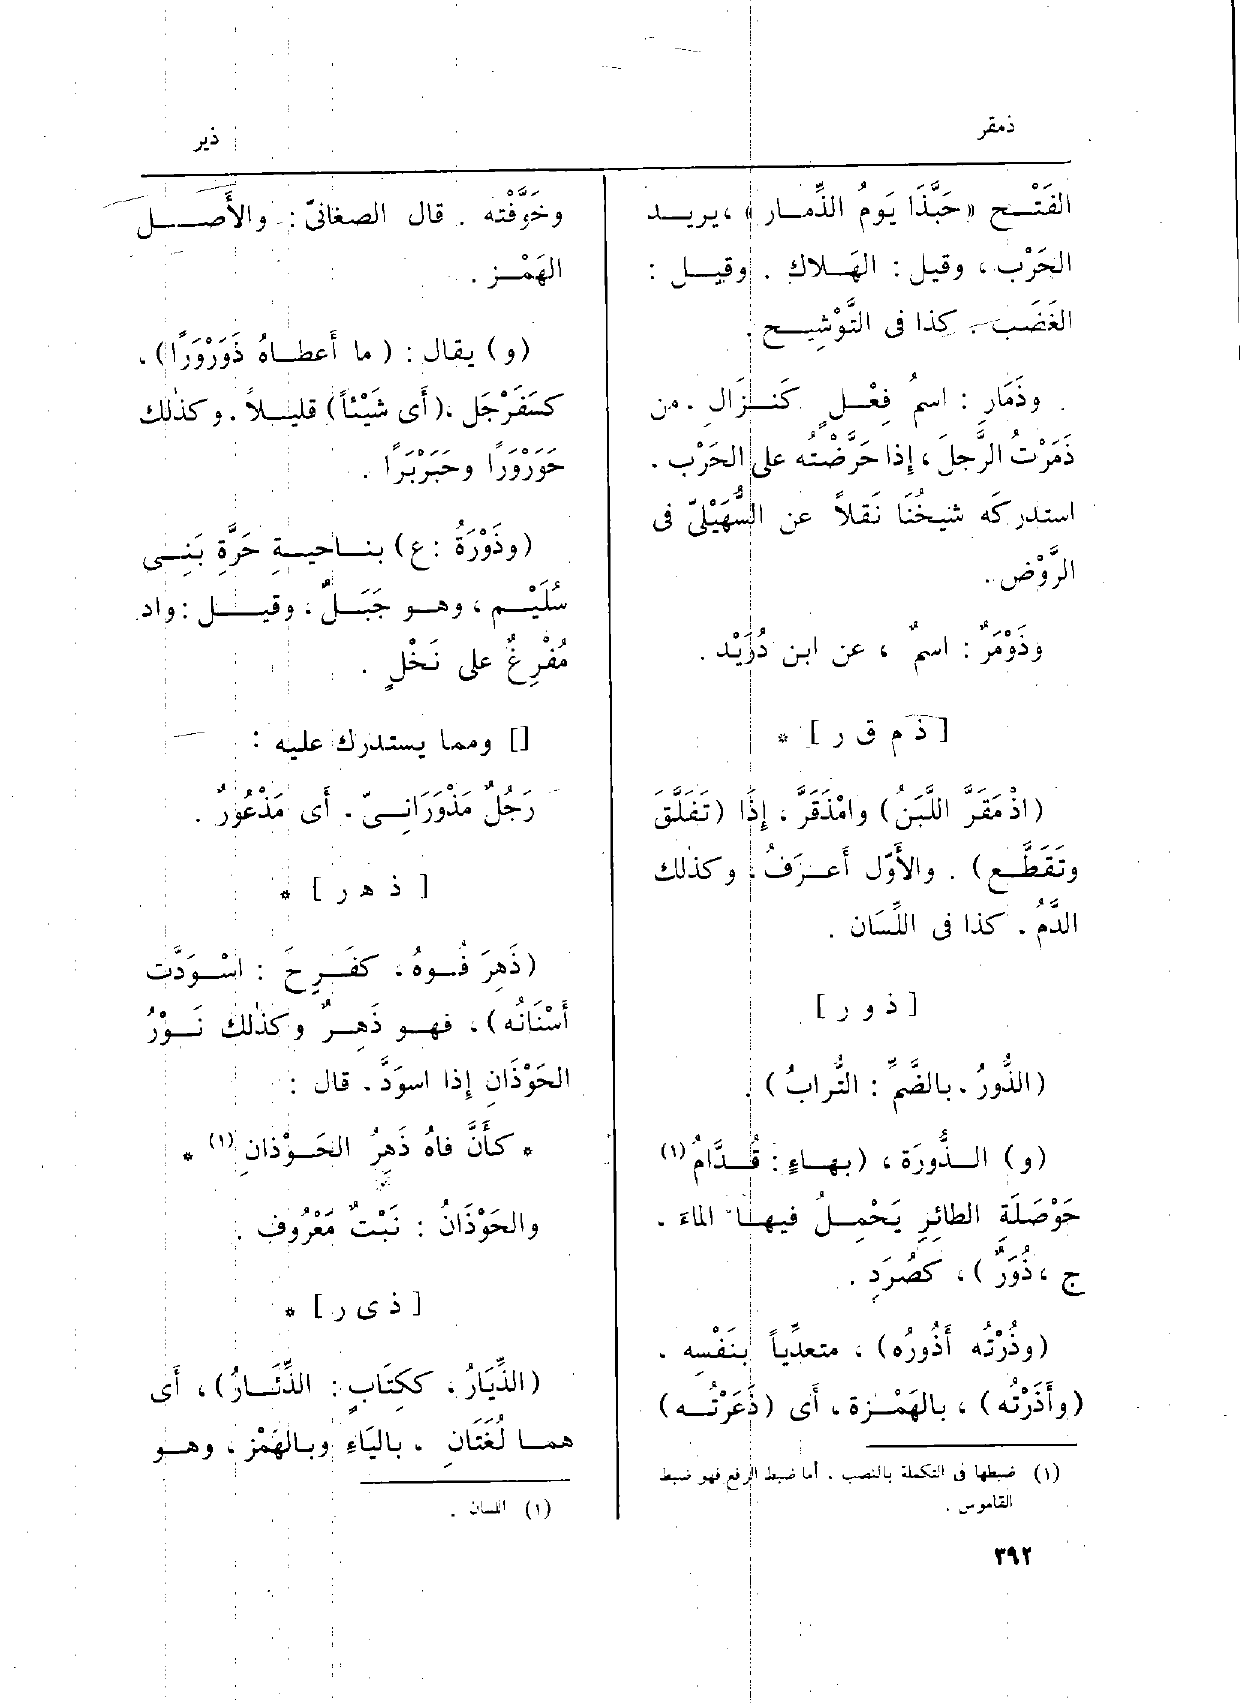 ذمقر
ذير
الفَتْح «حَبَّذَا يَومُ الذِّمار» ، يريد
الحَرْب ، وقيل : الهَلاك . وقيل :
الغَضَب . كذا فى التَّوْشِيح .
وذَمَارِ : اسمُ فِعْلٍ كَنَزَالِ . من
ذَمَرْتُ الرَّجلَ ، إذا حَرَّضْتُه على الحَرْب .
استدركَه شيخُنَا نَقلاً عن السُّهَيْلىّ فى
الرَّوْض .
وذَوْمَرٌ : اسمٌ ، عن ابن دُرَيْد .
[ ذ م ق ر ] *
(اذْمَقَرَّ اللَّبَنُ) وامْذَقَرَّ ، إِذَا (تَفَلَّقَ
وتَقَطَّع) . والأَوّل أَعرَفُ ، وكذلك
الدَّمُ . كذا فى اللِّسَان .
[ ذ و ر ]
(الذُّورُ . بالضَّمِّ : التُّرابُ) .
(و) الذُّورَة ، (بهاءٍ : قُدَّامُ (١)
حَوْصَلَةِ الطائِرِ يَحْمِلُ فيها الماءَ .
ج ، ذُوَرٌ ) ، كصُرَدٍ .
(وذُرْتُه أَذُورُه) ، متعدِّياً بنَفْسِه .
(وأَذَرْتُه) ، بالهَمْزة ، أَى (ذَعَرْتُه)
(١) ضبطها فى التكملة بالنصب . أما ضبط الرفع فهو ضبط
القاموس .
وخَوَّفْته . قال الصغانىّ : والأَصل
الهَمْز .
(و) يقال : ( ما أَعطاهُ ذَوَرْوَرًا) ،
كسَفَرْجَل ، (أَى شَيْئاً) قليلاً . وكذٰلك
حَوَرْوَرًا وحَبَرْبَرًا .
(وذَوْرَةُ : ع) بناحيةِ حَرَّةِ بَنِى
سُلَيْم ، وهو جَبَلٌ ، وقيل : واد
مُفْرِغٌ على نَخْلٍ .
[] ومما يستدرك عليه :
رَجُلٌ مَذْوَرَانِىّ . أَى مَذْعُورٌ .
[ ذ هـ ر ] *
(ذَهِرَ فُوهُ ، كفَرِحَ : اسْوَدَّت
أَسْنَانُه) ، فهو ذَهِرٌ وكذٰلك نَوْرُ
الحَوْذَانِ إذا اسوَدَّ . قال :
* كأَنَّ فاهُ ذَهِرُ الحَوْذانِ (١) *
والحَوْذَانُ : نَبْتٌ مَعْرُوف .
[ ذ ى ر ] *
(الذِّيَارُ ، ككِتَابٍ : الذِّئَارُ) ، أَى
هما لُغَتَانِ ، باليَاءِ وبالهَمْز ، وهو
(١) اللسان .
٣٩٢